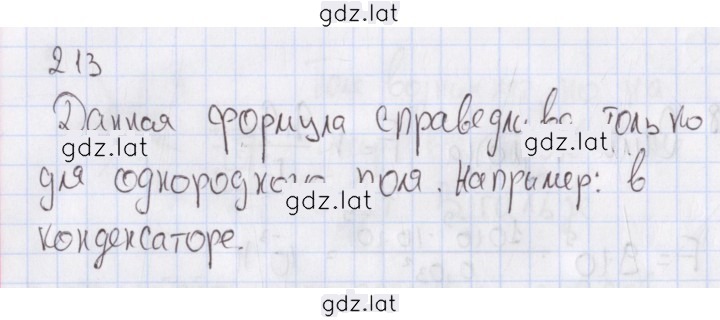 gdz.lat
213
Данная формула справедлива только
gdz.lat
gdz.lat
для однородного поля. Например: в
gdz.lat
конденсаторе.
gdz.lat